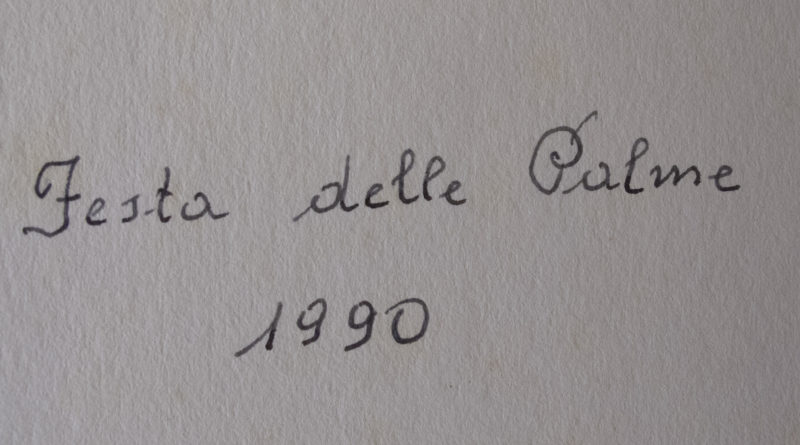 Festa delle Palme
1990